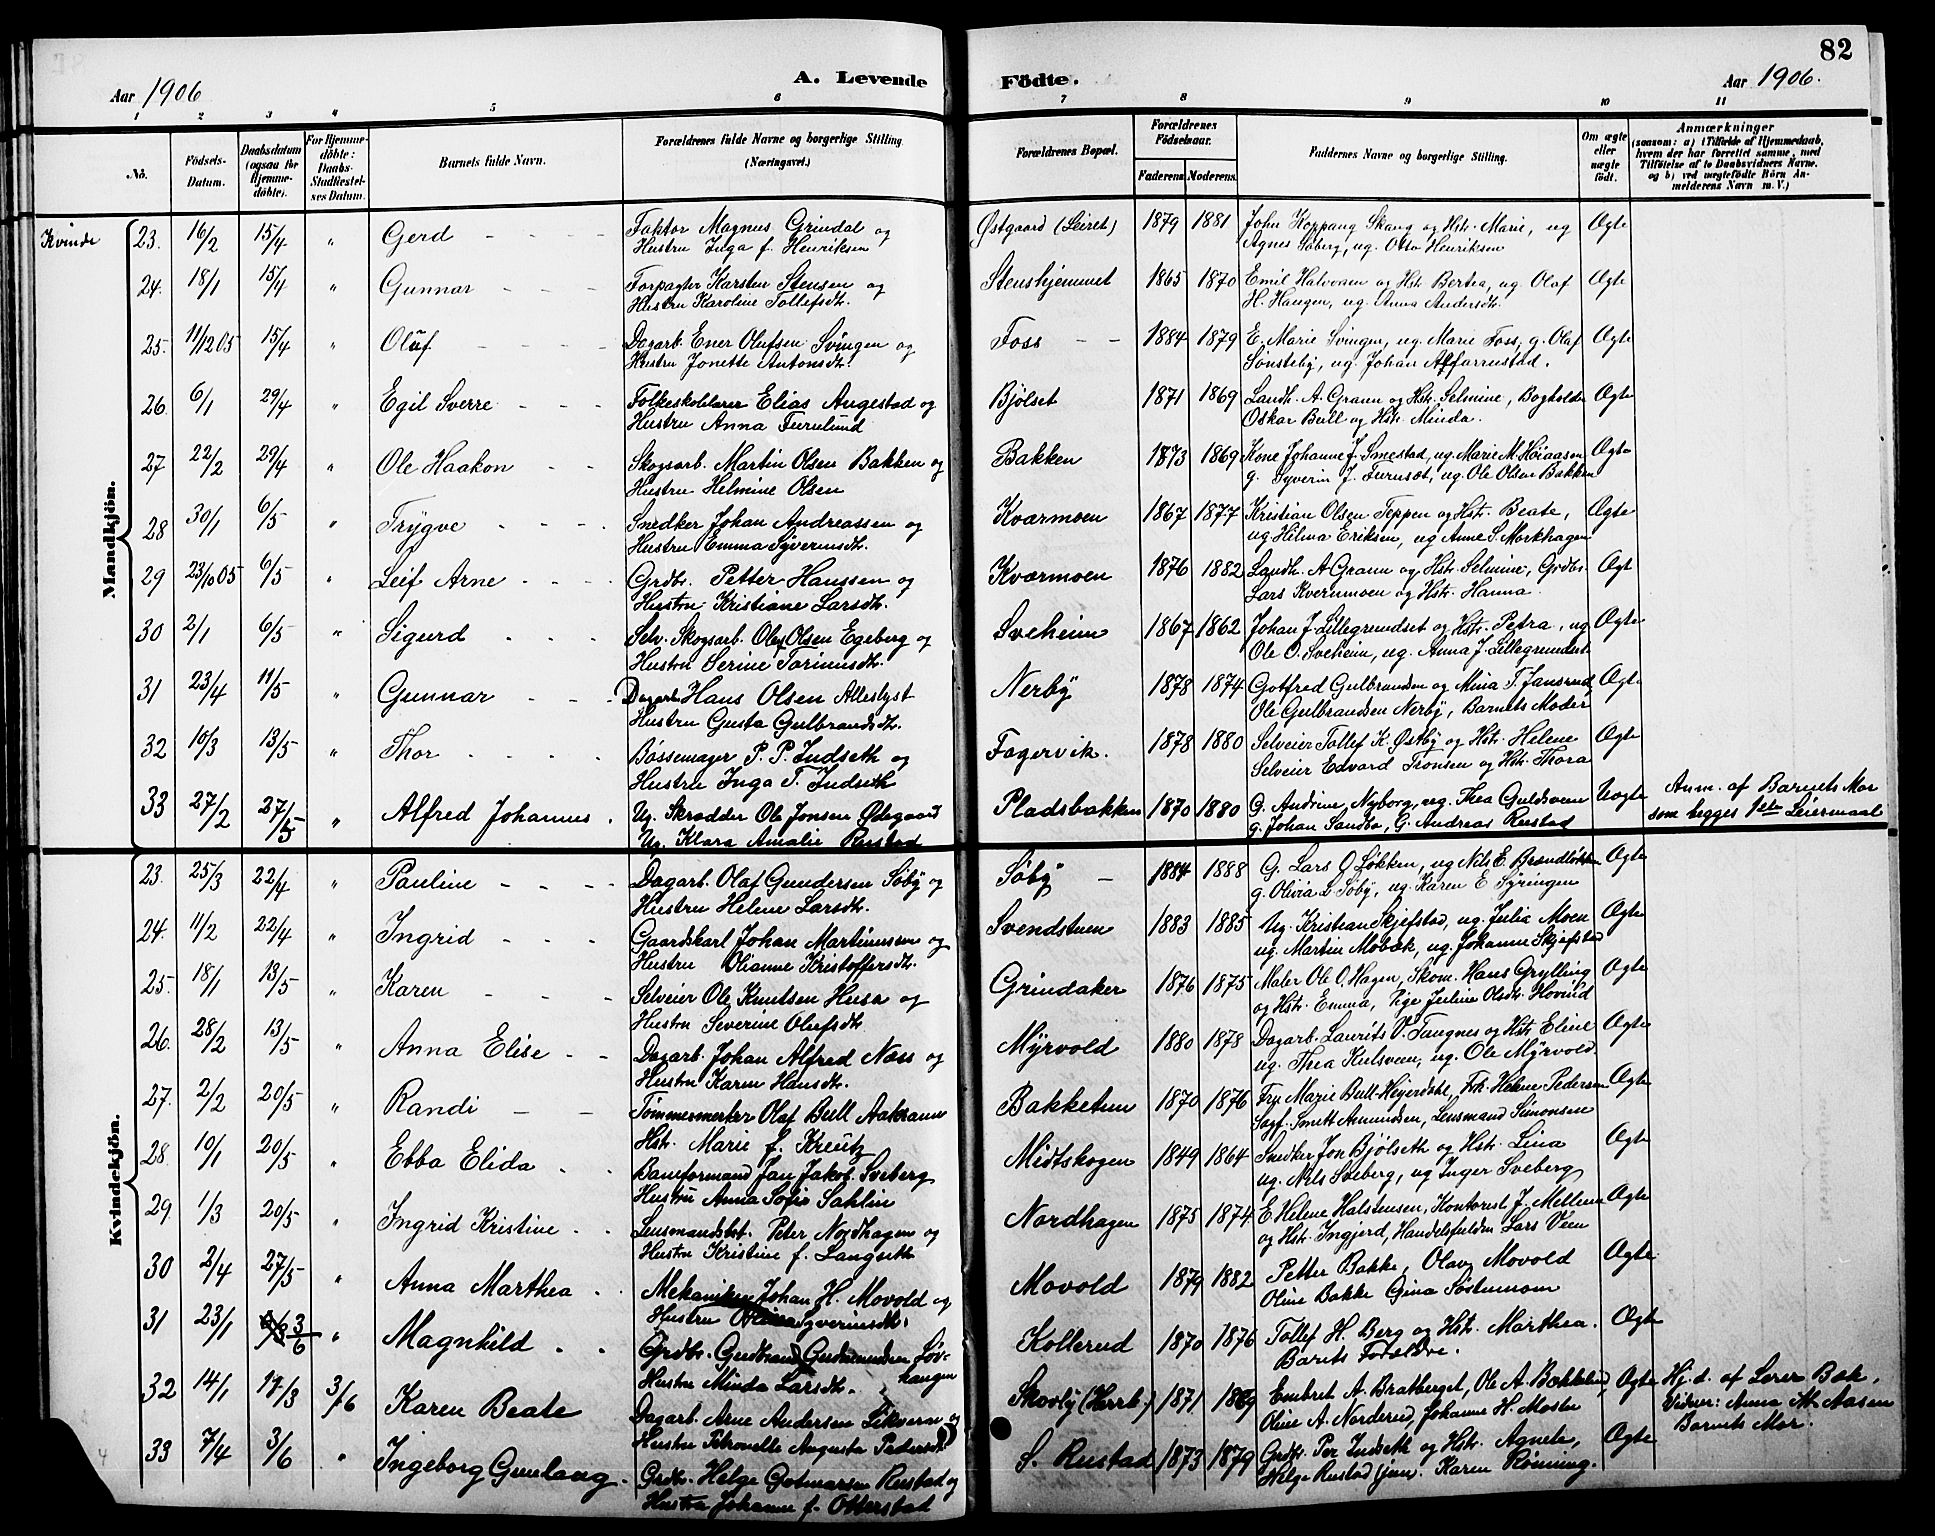 82
Aar 1906
A. Levende Födte.
Aar 1906.
1 2 3 4 5 6 7 8 9 10 11
No.
Födsels-Datum.
Daabsdatum (ogsaa for Hjemmedöbte).
For Hjemmedöbte: Daabs-Stadfæstelses Datum.
Barnets fulde Navn.
Forældrenes fulde Navne og borgerlige Stilling (Næringsvei.)
Forældrenes Bopæl.
Forældrenes Födselsaar.
Faderens Moderens.
Faddernes Navne og borgerlige Stilling.
Om ægte eller uægte födt.
Anmærkninger
(saasom: a) i Tilfælde af Hjemmedaab, hvem der har forrettet samme, med Tilföielse af to Daabsvidners Navne. og b) ved uægtefödte Börn Anmelderens Navn m. V.)
Kvinde
Mandkjön.
23. 16/2 15/4 " Gerd - - - - Faktor Magnus Grindal og Østgaard (Leiret) 1879 1881 John Koppang Skang og Hstr. Marie, ug Ægte
Hustru Inga f. Henriksen Agnes Søberg, ug. Otto Henriksen
24. 18/1 15/4 " Gunnar - - - Forpagter Karsten Stensen og Stenshjemmet 1865 1870 Emil Halvorsen og Hstr Bertea, ug. Olaf Ægte
Hustru Karoline Tollefsdtr. H. Haugen, ug. Anna Andersdtr.
25. 11/12 05 15/4 " Oluf - - - - Dagarb. Ener Olufsen Svingen og Foss - - 1884 1879 E. Marie Svingen, ug. Marie Foss, g. Olaf Ægte
Hustru Jonette Antonsdtr. Sønsteby, ug. Johan Affarrustad.
26. 6/1 29/4 " Egil Sverre - - - Folkeskolelærer Elias Angestad og Bjølset 1871 1869 Landh. A. Grann og Hstr. Selmine, Bogholder Ægte
Hustru Anna Furulund Oskar Bull og Hstr. Minda.
27 22/2 29/4 " Ole Haakon - - Skogsarb. Martin Olsen Bakken og Bakken 1873 1869 Kone Johanne J. Smestad, ug. Marie M. Høiaasen Ægte
Hustru Helmine Olsen g. Syverin J. Furuset, ug. Ole Olsen Bakken
28 30/1 6/5 " Trygve - - - - Snedker Johan Andreassen og Kværmoen 1867 1877 Kristian Olsen Teppen og Hstr. Beate, Ægte
Hustru Emma Syverinsdtr. ug Hilma Eriksen, ug Anne S. Morkhagen
29 23/10 05 6/5 " Leif Arne - - - - Grdbr. Petter Hanssen og Kværmoen 1876 1882 Landh. A Grann og Hstr. Selmine, Grdbr. Ægte
Hustru Kristiane Larsdtr. Lars Kvernmoen og Hstr. Hanna.
30 2/1 6/5 " Sigurd - - - Selv. Skogsarb. Ole Olsen Egeberg og Sveheim 1867 1862 Johan J. Lillegrundset og Hstr. Petra, ug Ægte
Hustru Serine Torinusdtr. Ole O. Sveheim, ug. Anna J. Lillegrundset
31 23/4 11/5 " Gunnar - - - Dagarb. Hans Olsen Alleslyst Nerby 1878 1874 Gotfred Gulbrandsen og Mina T. Jansrud, Ægte
Hustru Gusta Gulbrandsdtr. Ole Gulbrandsen Nerby, Barnets Moder
32 10/3 13/5 " Thor - - - - Bøssemager P. P. Indseth og Fagervik. 1878 1880 Selveier Tollef K. Østby og Hstr. Helene Ægte
Hustru Inga T. Indseth Selveier Edvard Tronsen og Hstr. Thora
33 27/2 27/5 " Alfred Johannes . Ug. Skrædder Ole Jonsen Ødegaard Pladsbakken 1870 1880 G. Andrine Nyborg, ug. Thea Guldsveen Uægte Anm. af Barnets Mor
Ug. Klara Amalie Rustad g. Johan Sandbo, G. Andreas Rustad som begges 1ste Leiermaal
Kvindekjön.
23. 25/3 22/4 " Pauline - - - - Dagarb. Olaf Gundersen Søby og Søby - 1884 1888 G. Lars G Løkken, ug Nils E. Brændløkken Ægte
Hustru Helene Larsdtr. g. Olivia L. Søby, ug. Karen E Syringen
24. 11/2 22/4 " Ingrid - - - Gaardskarl Johan Martinussen og Svendstuen 1883 1885 Ug. Kristian Skjefstad, ug. Julie Moen Ægte
Hustru Olianne Kristoffersdtr. ug. Martin Mobæk, ug. Johanne Skjefstad
25. 18/1 13/5 " Karen - - - Selveier Ole Knutsen Husa og Grindaker 1876 1875 Maler Ole O. Hagen, Skom. Hans Grylling Ægte
Hustru Severine Olufsdtr og Hstr. Emma, Pige Juline Olsdtr. Hovind
26. 28/2 13/5 " Anna Elise - - Dagarb. Johan Alfred Næss og Myrvold 1880 1878 Dagarb. Laurits V. Tangnes og Hstr Eline Ægte
Hustru Karen Hansdtr. ug. Thea Kulsveen, ug. Ole Myrvold.
27. 2/2 20/5 " Randi - - Tømmermerker Olaf Bull Aakrann Bakketun 1870 1876 Fru Marie Bull-Heyerdahl, Frk. Helene Pedersen Ægte
Hstr. Marie f. Kreutz Sagf. Smitt Amundsen, Lensmand Simonsen
28. 10/1 20/5 " Ebba Elida . . Baneformand Jan Jakob. Sveberg Midtskogen 1849 1864 Snedker Jon Bjølseth og Hstr. Lina Ægte
Hustru Anna Sofia Sahlin ug. Nils Sveberg, ug Inger Sveberg
29. 1/3 20/5 " Ingrid Kristine . . Lensmandsbet. Peter Nordhagen og Nordhagen 1875 1874 E. Helene Halstensen, Kontorist J. Mellem Ægte
Hustru Kristine f. Langseth og Hstr. Ingjerd, Handelsfuldm. Lars Veen
30 2/4 27/5 " Anna Marthea . . Mekaniker Johan H. Movold og Movold 1879 1882 Petter Bakke, Olav Movold Ægte
Hustru Olina Syverinsdtr. Oline Bakke Gina Søstumoen
31 23/1 3/6 " Magnhild . . Grdbr. Gudbrand Gudmundsen Løvhaugen Kollerud 1870 1876 Tollef H. Berg og Hstr. Marthea. Ægte
Hustru Minda Larsdtr. Barnets Forældre.
32 14/1 17/3 3/6 Karen Beate Dagarb. Arne Andersen Likvern og Skovly (Herrb.) 1871 1869 Embret A. Bratberget, Ole A. Bækkelund, Ægte Hj. d. af Lærer Bæk.
Hustru Petronelle Augusta Pedersdtr Oline A. Norderud, Johanne H. Mosbæ Vidner: Anna M. Aasen
Barnets Mor.
33 7/4 3/6 " Ingeborg Gunlaug . Grdbr. Helge Gotmarsen Rustad og S. Rustad 1873 1879 Grdbr. Per Indseth og Hstr. Agnete, Ægte
Hustru Johanne f. Otterstad Helge Rustad jun. Karen Rønning.